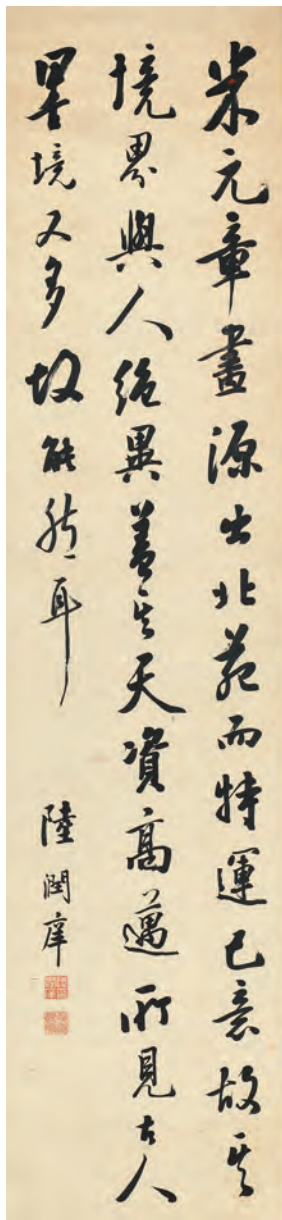 米元章畫源出北苑而特運己意故其
境界與人絶異蓋其天資高邁所見古人
墨境又多故能然耳
陸潤庠